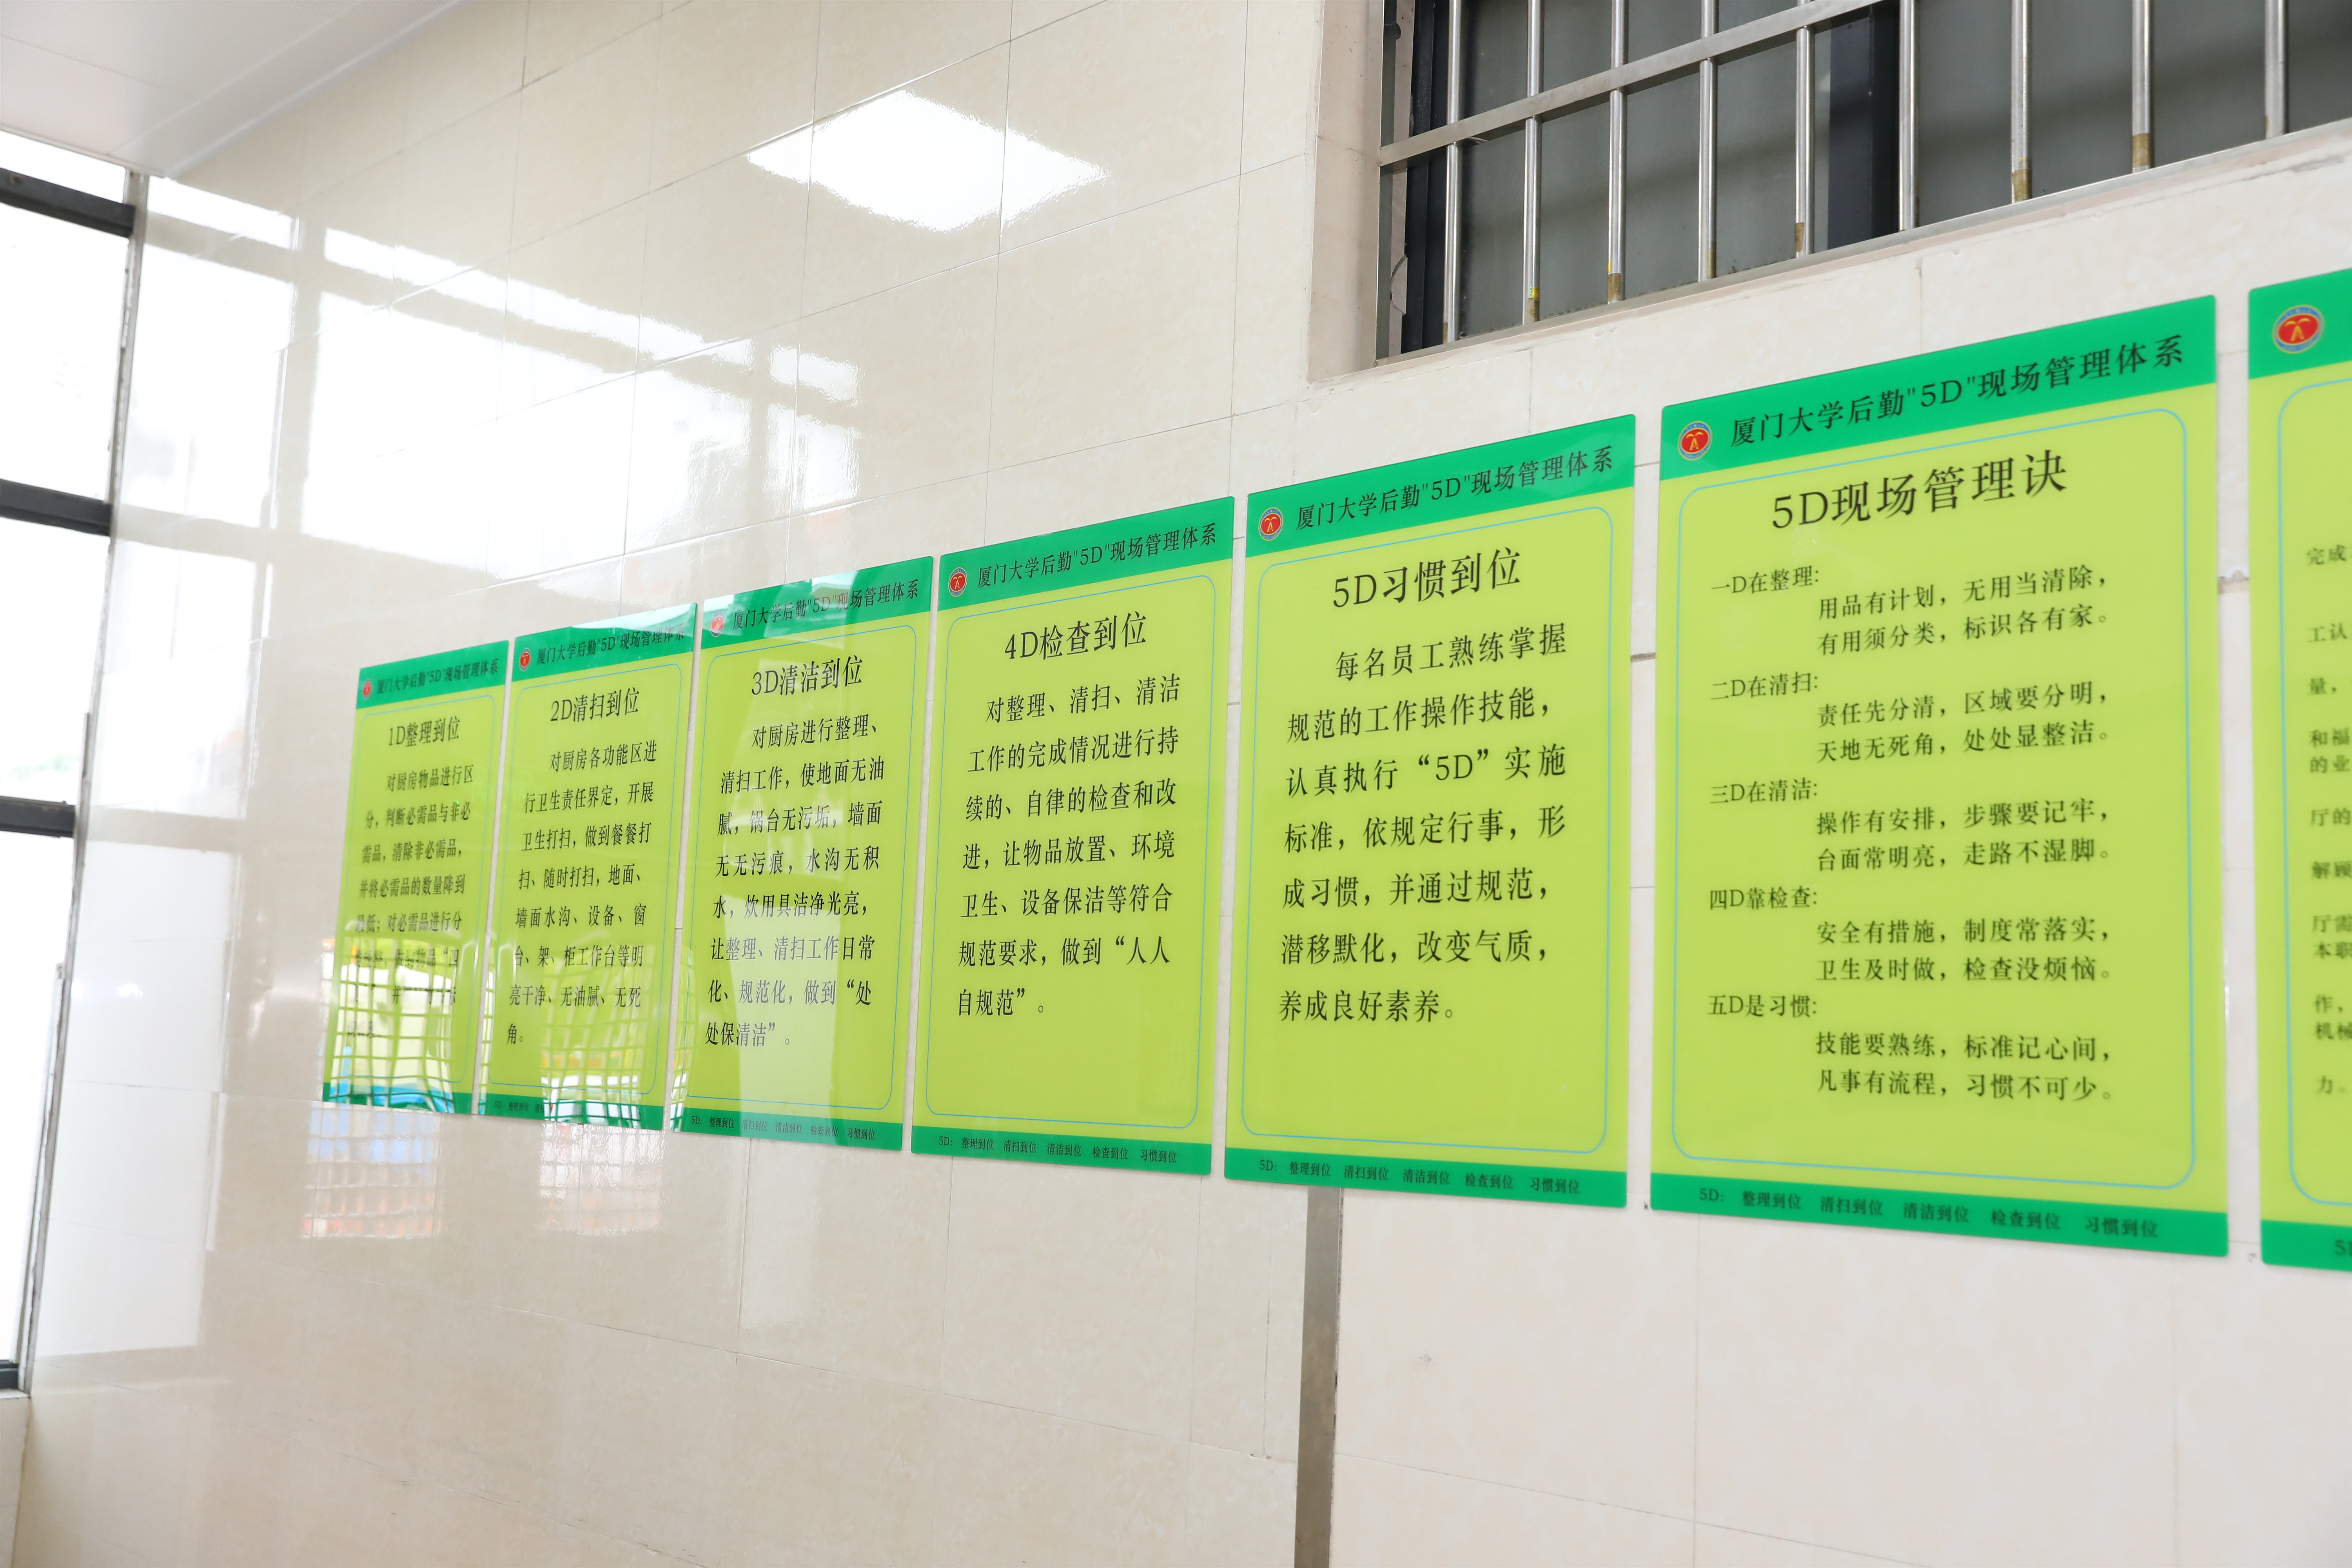 厦门大学后勤"5D"现场管理体系
1D整理到位
对厨房物品进行区
分，判断必需品与非必
需品，清除非必需品，
并将必需品的数量降到
最低；对必需品进行分
物品“四
并
厦门大学后勤"5D"现场管理体系
2D清扫到位
对厨房各功能区进
行卫生责任界定，开展
卫生打扫，做到餐餐打
扫、随时打扫，地面、
墙面水沟、设备、窗
台、架、柜工作台等明
亮干净、无油腻、无死
角。
5D： 整理到位
厦门大学后勤"5D"现场管理体系
3D清洁到位
对厨房进行整理、
清扫工作，使地面无油
腻，锅台无污垢，墙面
无无污痕，水沟无积
水，炊用具洁净光亮，
让整理、清扫工作日常
化、规范化，做到“处
处保清洁”。
5D： 整理到位 清扫到位 清洁到位 检查到位 习惯到位
厦门大学后勤"5D"现场管理体系
4D检查到位
对整理、清扫、清洁
工作的完成情况进行持
续的、自律的检查和改
进，让物品放置、环境
卫生、设备保洁等符合
规范要求，做到“人人
自规范”。
5D： 整理到位 清扫到位 清洁到位 检查到位 习惯到位
厦门大学后勤"5D"现场管理体系
5D习惯到位
每名员工熟练掌握
规范的工作操作技能，
认真执行“5D”实施
标准，依规定行事，形
成习惯，并通过规范，
潜移默化，改变气质，
养成良好素养。
5D： 整理到位 清扫到位 清洁到位 检查到位 习惯到位
厦门大学后勤"5D"现场管理体系
5D现场管理诀
一D在整理：
用品有计划，无用当清除，
有用须分类，标识各有家。
二D在清扫：
责任先分清，区域要分明，
天地无死角，处处显整洁。
三D在清洁：
操作有安排，步骤要记牢，
台面常明亮，走路不湿脚。
四D靠检查：
安全有措施，制度常落实，
卫生及时做，检查没烦恼。
五D是习惯：
技能要熟练，标准记心间，
凡事有流程，习惯不可少。
5D： 整理到位 清扫到位 清洁到位 检查到位 习惯到位
完成
工认
量，
和福
的业
厅的
解顾
厅需
本职
作，
机械
力。